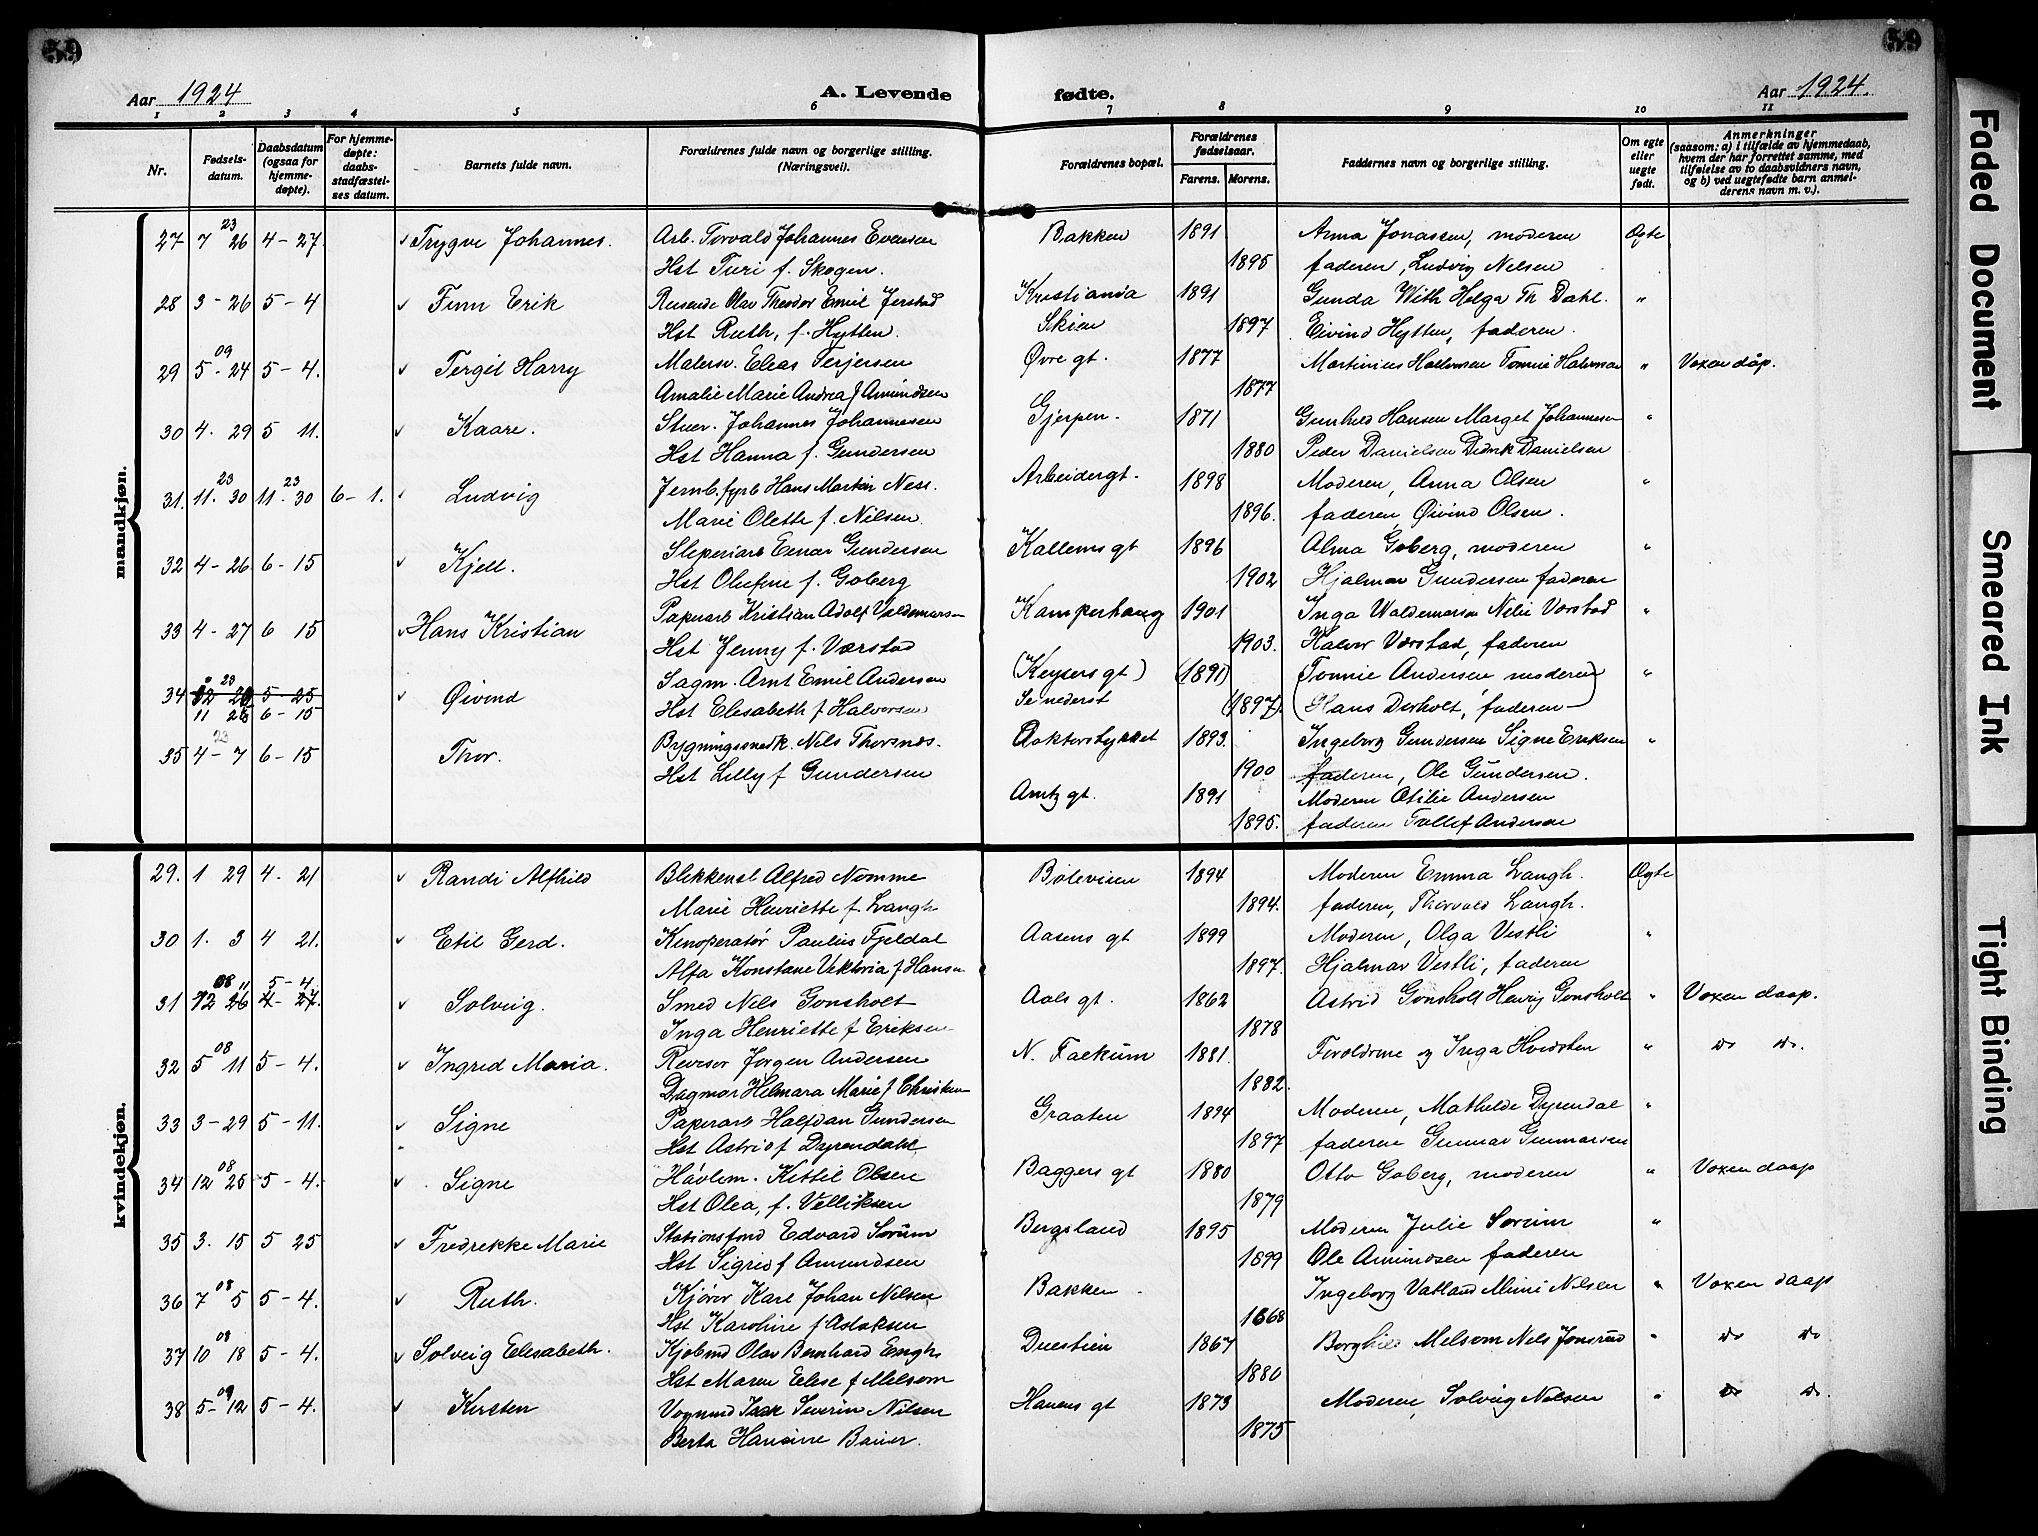 59
59
Aar 1924
A. Levende
fødte.
Aar 1924.
1 2 3 4 5 6 7 8 9 10 11
Nr.
Fødsels-
datum.
Daabsdatum
(ogsaa for
hjemme-
døpte).
For hjemme-
døpte:
daabs-
stadfæstel-
ses datum.
Barnets fulde navn.
Forældrenes fulde navn og borgerlige stilling.
(Næringsvei).
Forældrenes bopæl.
Forældrenes
fødselsaar.
Farens. Morens.
Faddernes navn og borgerlige stilling.
Om egte
eller
uegte
født.
Anmerkninger
(saasom: a) i tilfælde av hjemmedaab,
hvem der har forrettet samme, med
tilføielse av to daabsvidners navn,
og b) ved uegtefødte barn anmel-
derens navn m. v.).
mandkjøn.
23
27 7 26 4 - 27. Trygve Johannes. Arb. Torvald Johannes Evensen Bakken 1891 Anna Jonassen, moderen Ægte
Hst Turi f. Skogen. 1895 faderen, Ludvig Nelsen
28 3 - 26 5 - 4 Finn Erik Reisende Olav Theodor Emil Jerstad Kristiania 1891 Gunda With Helga Th Dahl. "
Hst Ruth, f. Hytten. Skien 1897 Eivind Hytten, faderen.
09
29 5 - 24 5 - 4. Tergil Harry Malersv. Eleas Terjersen Øvre gt. 1877 " Voxen dåp.
Amalie Marie Andrea f Amundsen 1877
30 4. 29 5 11. Kaare. Stuer. Johannes Johannesen Gjerpen. 1871 Gunhild Hansen Marget Johannesen "
Hst Hanna f. Gundersen 1880 Peder Danielsen Didrik Danielsen
23 23
31. 11. 30 11 - 30 6 - 1. Ludvig Jernb. fyrb Hans Martin Ness. Arbeidergt. 1898 Moderen, Anna Olsen "
Marie Olette f. Nilsen. 1896. faderen, Øivind Olsen.
32 4 - 26 6 - 15 Kjell. Sleperiarb Einar Gundersen Kallemsgt 1896 Alma Goberg, moderen "
Hst Olufine f. Goberg 1902 Hjalmar Gundersen faderen
33 4 - 27 6 15 Hans Kristian Papirarb Kristian Adolf Valdemarsen Kamperhaug 1901 Inga Waldemarsen Nelie Værstad "
Hst Jenny f. Værstad 1903. Halvor Værstad, faderen
23
34 12 26 5 - 25 Øivind Sagm. Arnt Emil Andersen (Keysersgt) (1891) (Tomine Andersen moderen) "
11 26 6 - 15 Hst Elesabeth f Halvorsen Se nederst (1897). (Hans Dexholt, faderen -
23
35 4 - 7 6 - 15 Thor. Bygningssnedk. Nils Thorsnes. Doktorstykket 1893. Ingeborg Gundersen Signe Eriksen "
Hst Lilly f Gundersen 1900 faderen, Ole Gundersen.
Amtzgt. 1891 Moderen Otilie Andersen
1895. faderen Tollef Andersen
kvindekjøn.
29. 1 29 4. 21 Randi Alfhild Blikkensl Alfred Nomme Bølevisen 1894 Moderen Emma Langh. Ægte
Marie Henriette f. Langh 1894. faderen, Thorvald Langh.
30 1. 3 4 21. Etil Gerd. Kinoperatør Paulius Fjeldal Aasens gt 1899 Moderen, Olga Vestli "
Alfa Konstanse Viktoria f Hansen 1897. Hjalmar Vestli, faderen
08 11 5 - 4
31 12 26 4 - 27. Solveig. Smed Nils Gonsholt Aals gt. 1862 Astrid Gonsholt Henrij Gonsholt " Voxen daap.
Inga Henriette f Eriksen 1878
08
32 5 11 5 - 4. Ingrid Maria. Revisor Jørgen Andersen N. Falkum 1881. Foreldrene og Inga Hvidsten " do do.
Dagmar Hilmara Marie f Christensen 1882.
33 3 - 29 5 - 11. Signe Papirarb Halfdan Gundersen Graaten 1894 Moderen, Mathilde Dyrendal "
Hst Astrid f Dyrendahl 1897 faderen Gunnar Gunnarsen
08
34 12 25 5 - 4. Signe Høvlem. Kittil Olsen Baggers gt 1880 Otto Goberg, moderen " Voxen daap
Hst Olea, f. Velliksen 1879
35 3. 15 5 25 Fredrekke Marie Stationsfond Edvard Sørum Bergsland 1895 Moderen Julie Sørum "
Hst Sigrid f Amundsen 1899 Ole Amundsen faderen
08
36 7 5 5 - 4. Ruth. Kjører Karl Johan Nilsen Bakken - Ingeborg Vatland Mimi Nilsen " Voxen daap
Hst Karoline f Aslaksen 1868
08
37 10 18 5 - 4. Solveig Elesabeth. Kjøbmd Olav Bernhard Engh Duestien 1867 Borghild Melsom Nils Jonsrud " do do
Hst Maren Elise f Melsom 1880
09
38 5 - 12 5 - 4. Kirsten Vognmd Isak Severin Nilsen Hauens gt 1873 Moderen, Solveig Nilsen " do do.
Berta Hansine Bauer. 1875
Faded Document
Smeared Ink
Tight Binding